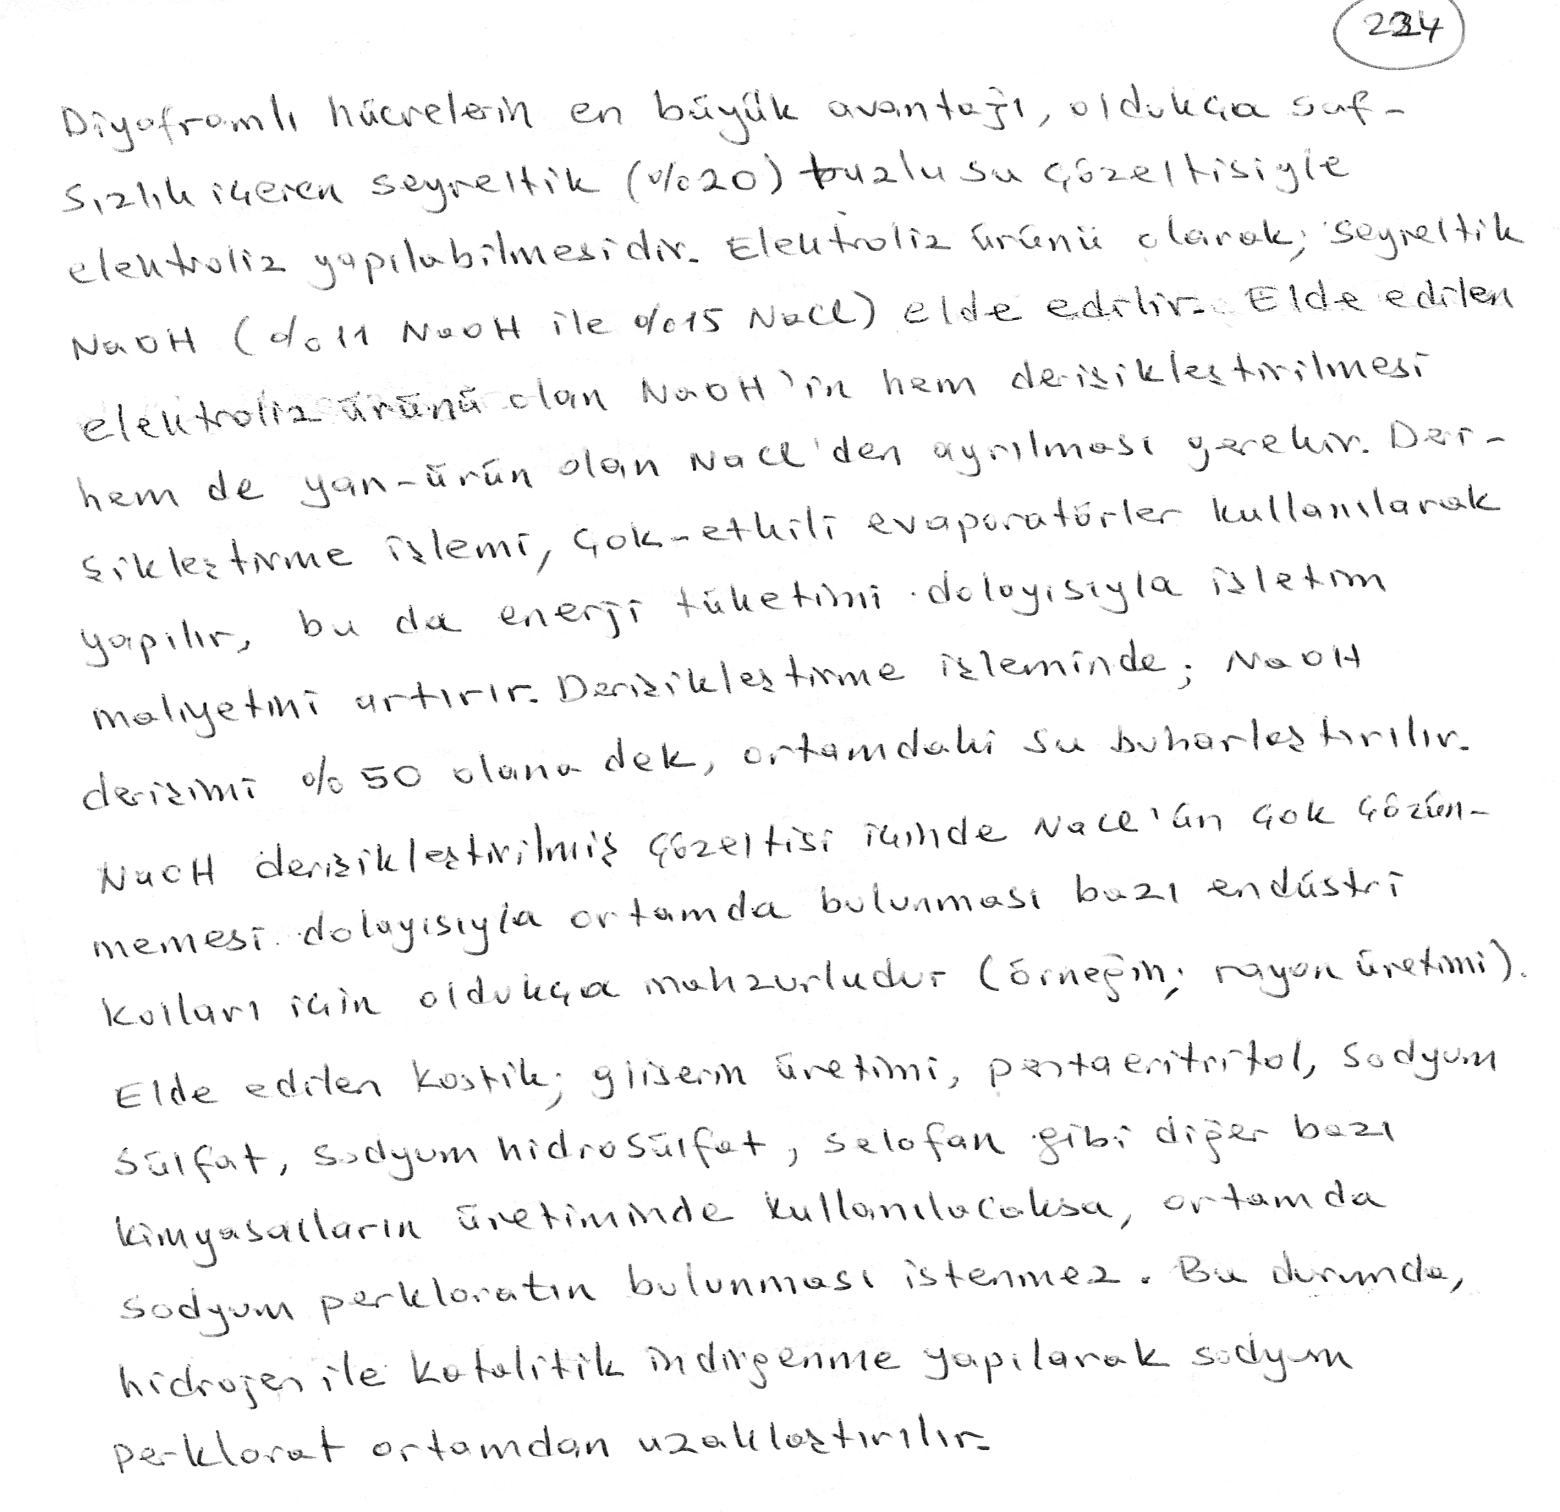 234
Diyaframlı hücrelerin en büyük avantajı, oldukça saf-
sızlık içeren seyreltik (%20) tuzlu su çözeltisiyle
elektroliz yapılabilmesidir. Elektroliz ürünü olarak; seyreltik
NaOH (%11 NaOH ile %15 NaCl) elde edilir. Elde edilen
elektroliz ürünü olan NaOH'in hem derişikleştirilmesi
hem de yan-ürün olan NaCl'den ayrılması gerekir. Der-
şikleştirme işlemi, çok-etkili evaporatörler kullanılarak
yapılır, bu da enerji tüketimi dolayısıyla işletim
maliyetini artırır. Derişikleştirme işleminde; NaOH
derişimi %50 olana dek, ortamdaki su buharlaştırılır.
NaOH derişikleştirilmiş çözeltisi içinde NaCl'ün çok çözün-
memesi dolayısıyla ortamda bulunması bazı endüstri
kolları için oldukça mahzurludur (örneğin; rayon üretimi).
Elde edilen kostik; gliserin üretimi, pentaeritritol, sodyum
sülfat, sodyum hidrosülfat, selofan gibi diğer bazı
kimyasalların üretiminde kullanılacaksa, ortamda
sodyum perkloratın bulunması istenmez. Bu durumda,
hidrojen ile katalitik indirgenme yapılarak sodyum
perklorat ortamdan uzaklaştırılır.